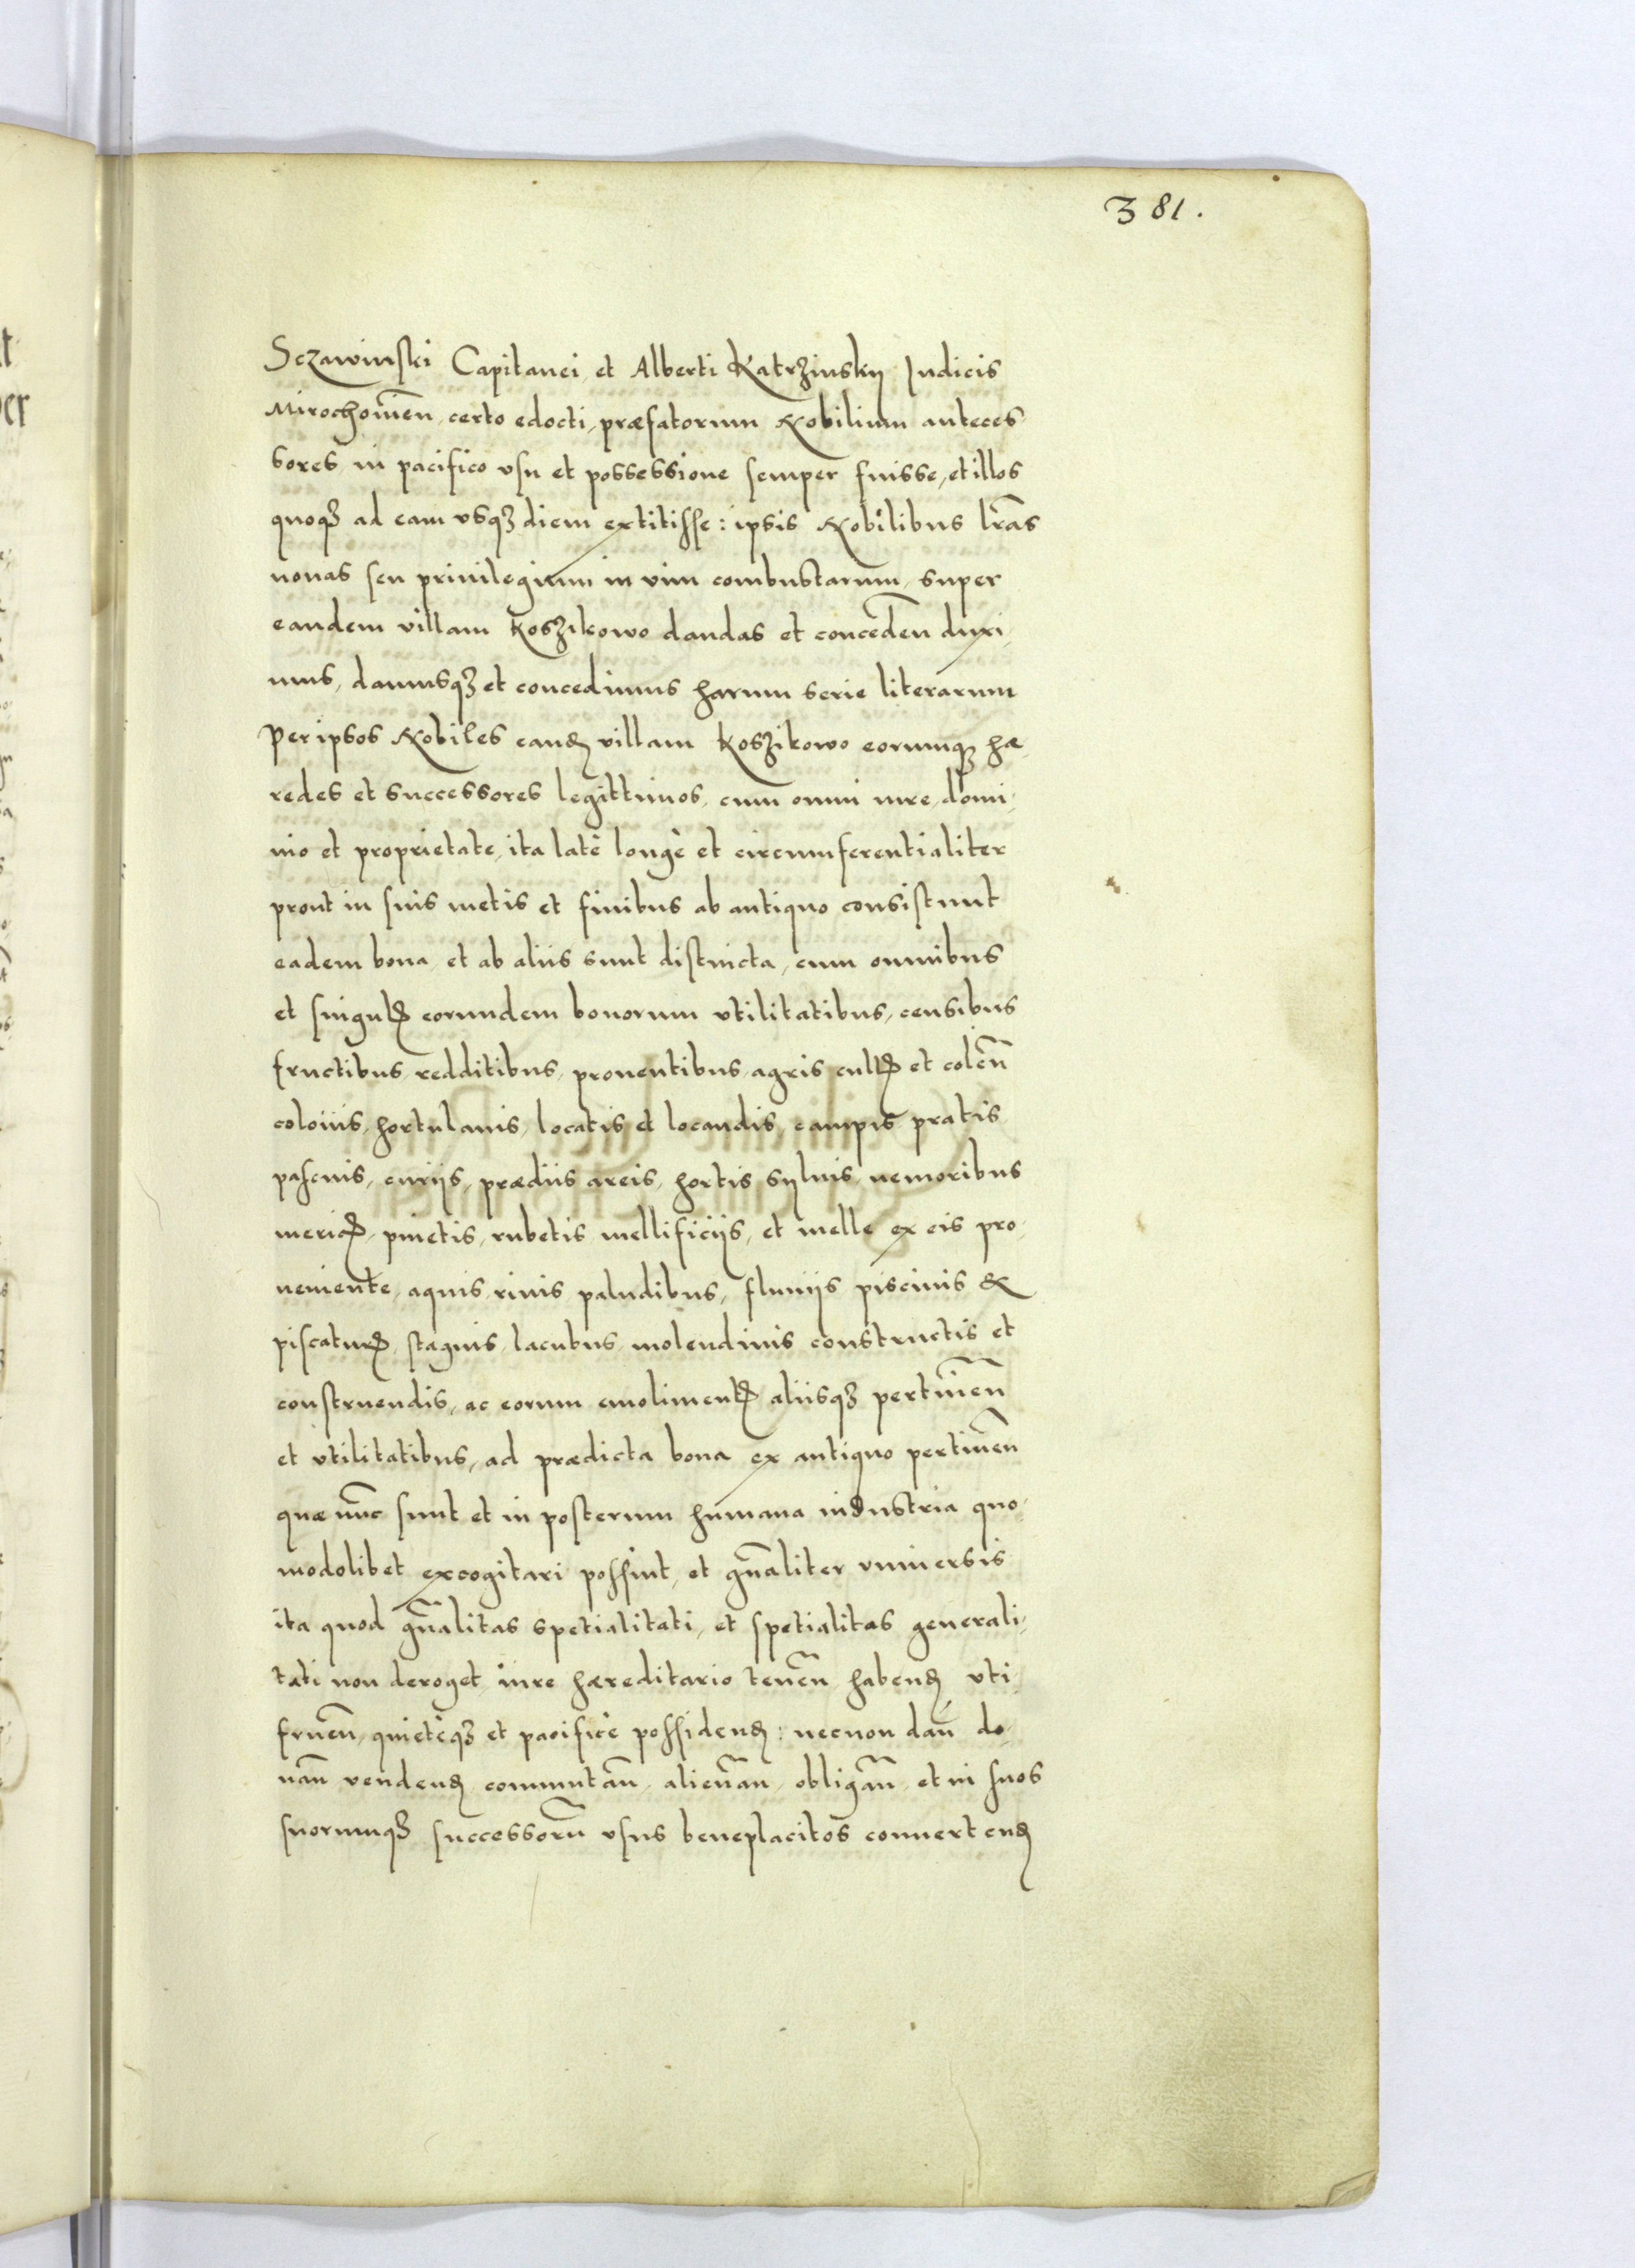 381.
Sczawinski Capitanei et Alberti Katrzinsky Iudicis
Mirochowien̄, certo edocti, præfatorum Nobilium anteces-
sores in pacifico vsu et possessione semper fuisse, et illos
quoqꝫ ad eam vsqꝫ diem extitisse: ipsis Nobilibus lr̄as
nouas seu priuilegium in vim combustarum, super
eandem villam Koszikowo dandas et conceden̄ duxi-
mus, damusqꝫ et concedimus harum serie literarum
Per ipsos Nobiles eandꝫ villam Koszikowo eorumqꝫ hæ-
redes et successores legittimos, cum omni iure, domi-
nio et proprietate, ita latè longè et circumferentialiter
prout in suis metis et finibus ab antiquo consistunt
eadem bona, et ab aliis sunt distincta, cum omnibus
et singulꝭ eorundem bonorum vtilitatibus, censibus
fructibus, redditibus, prouentibus, agris cultꝭ et colen̄
coloniis, hortulanis, locatis et locandis, campis pratis
pascuis, curiis, prædiis areis, hortis syluis, nemoribus
mericꝭ, pinetis, rubetis mellificiis, et melle ex eis pro-
ueniente, aquis, riuis paludibus, fluuiis piscinis &
piscaturꝭ, stagnis, lacubus, molendinis constructis et
construendis, ac eorum emolimentꝭ aliisqꝫ pertinen̄
et vtilitatibus, ad prædicta bona ex antiquo pertinen̄
quæ nūc sunt et in posterum humana industria quo-
modolibet excogitari possint, et gn̄aliter vniuersis
ita quod gn̄alitas spetialitati, et spetialitas generali-
tati non deroget, iure hæreditario tenen̄ habendꝫ vti
fruen̄, quietèqꝫ et pacificè possidendꝫ: necnon dan̄ do-
nan̄ vendendꝫ commutan̄, alienan̄, obligan̄, et in suos
suorumqꝫ successorū vsus beneplacitos conuertendꝫ